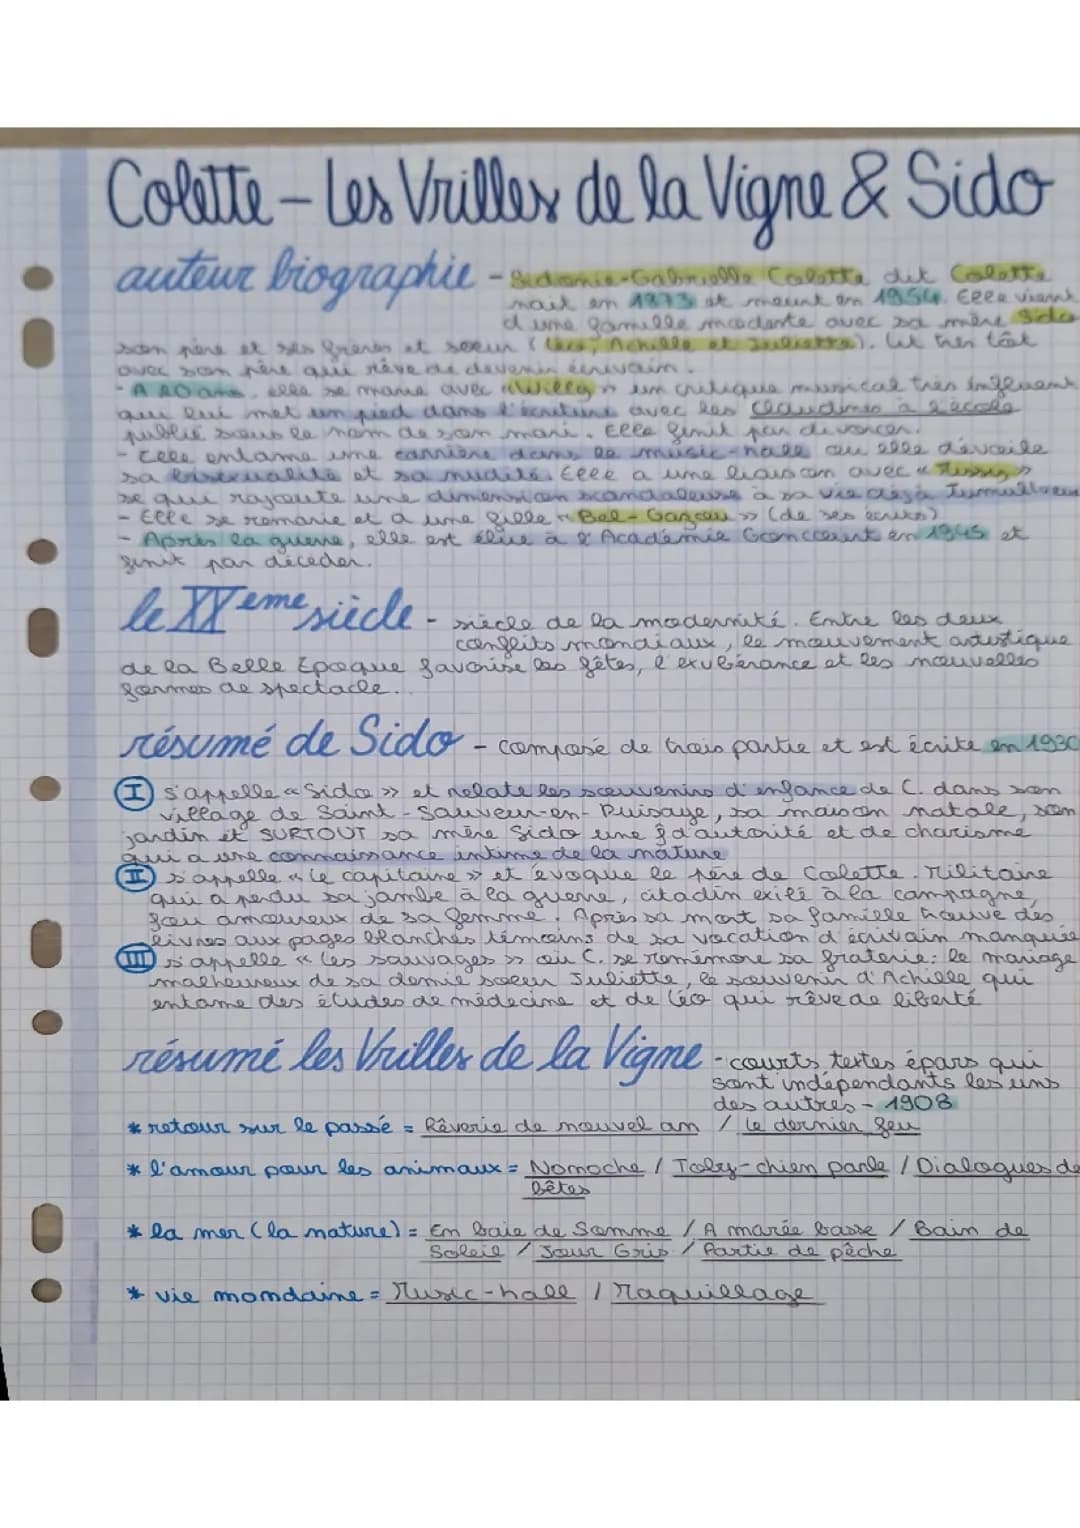 Colette - Les Vrilles de la Vigne & Sido
auteur biographie - Sidonie-Gabrielle Colette dit Colette
nait en 1873 et meurt en 1954. Elle vient
d'une famille modeste avec sa mère Sido
son père et ses freres et soeur (Léo, Achille et Juliette). Lit tres tôt
avec son père qui rêve de devenir écrivain.
- A 20 ans, elle se marie avec « Willy » un critique musical très influent
qui lui met un pied dans l'écriture avec les Claudines à l'école
publié sous le nom de son mari. Elle finit par divorcer.
- Elle entame une carrière dans le music-hall ou elle dévoile
sa bisexualité et sa nudité. Elle a une liaison avec « Missy »
se qui rajoute une dimension scandaleuse à sa vie déjà Tumultueuse
- Elle se remarie et a une fille « Bel-Gazou » (de ses écrits)
- Après la guerre, elle est élue à l'Académie Goncourt en 1945 et
finit par décéder.
le XXème siècle - siècle de la modernité. Entre les deux
conflits mondiaux, le mouvement artistique
de la Belle Epoque favorise les fêtes, l'exubérance et les nouvelles
formes de spectacle.
résumé de Sido - composé de trois partie et est écrite en 1930
I s'appelle « Sido » et relate les souvenirs d'enfance de C. dans son
village de Saint-Sauveur-en-Puisaye, sa maison natale, son
jardin et SURTOUT sa mère Sido une f d'autorité et de charisme
qui a une connaissance intime de la nature
II s'appelle « le capitaine » et évoque le père de Colette. Militaire
qui a perdu sa jambe à la guerre, citadin exilé à la campagne,
fou amoureux de sa femme. Après sa mort sa famille trouve des
livres aux pages blanches témoins de sa vocation d'écrivain manquée
III s'appelle « les sauvages » où C. se remémore sa fraterie: le mariage
malheureux de sa demie soeur Juliette, le souvenir d'Achille qui
entame des études de médecine et de Léo qui rêve de liberté
résumé les Vrilles de la Vigne - courts textes épars qui
sont indépendants les uns
des autres - 1908
* retour sur le passé = Rêverie de nouvel an / Le dernier feu
* l'amour pour les animaux = Nonoche / Toby-chien parle / Dialogues de
bêtes
* la mer (la nature) = En baie de Somme / A marée basse / Bain de
Soleil / Jour Gris / Partie de pêche
* vie mondaine = Music-hall / Maquillage